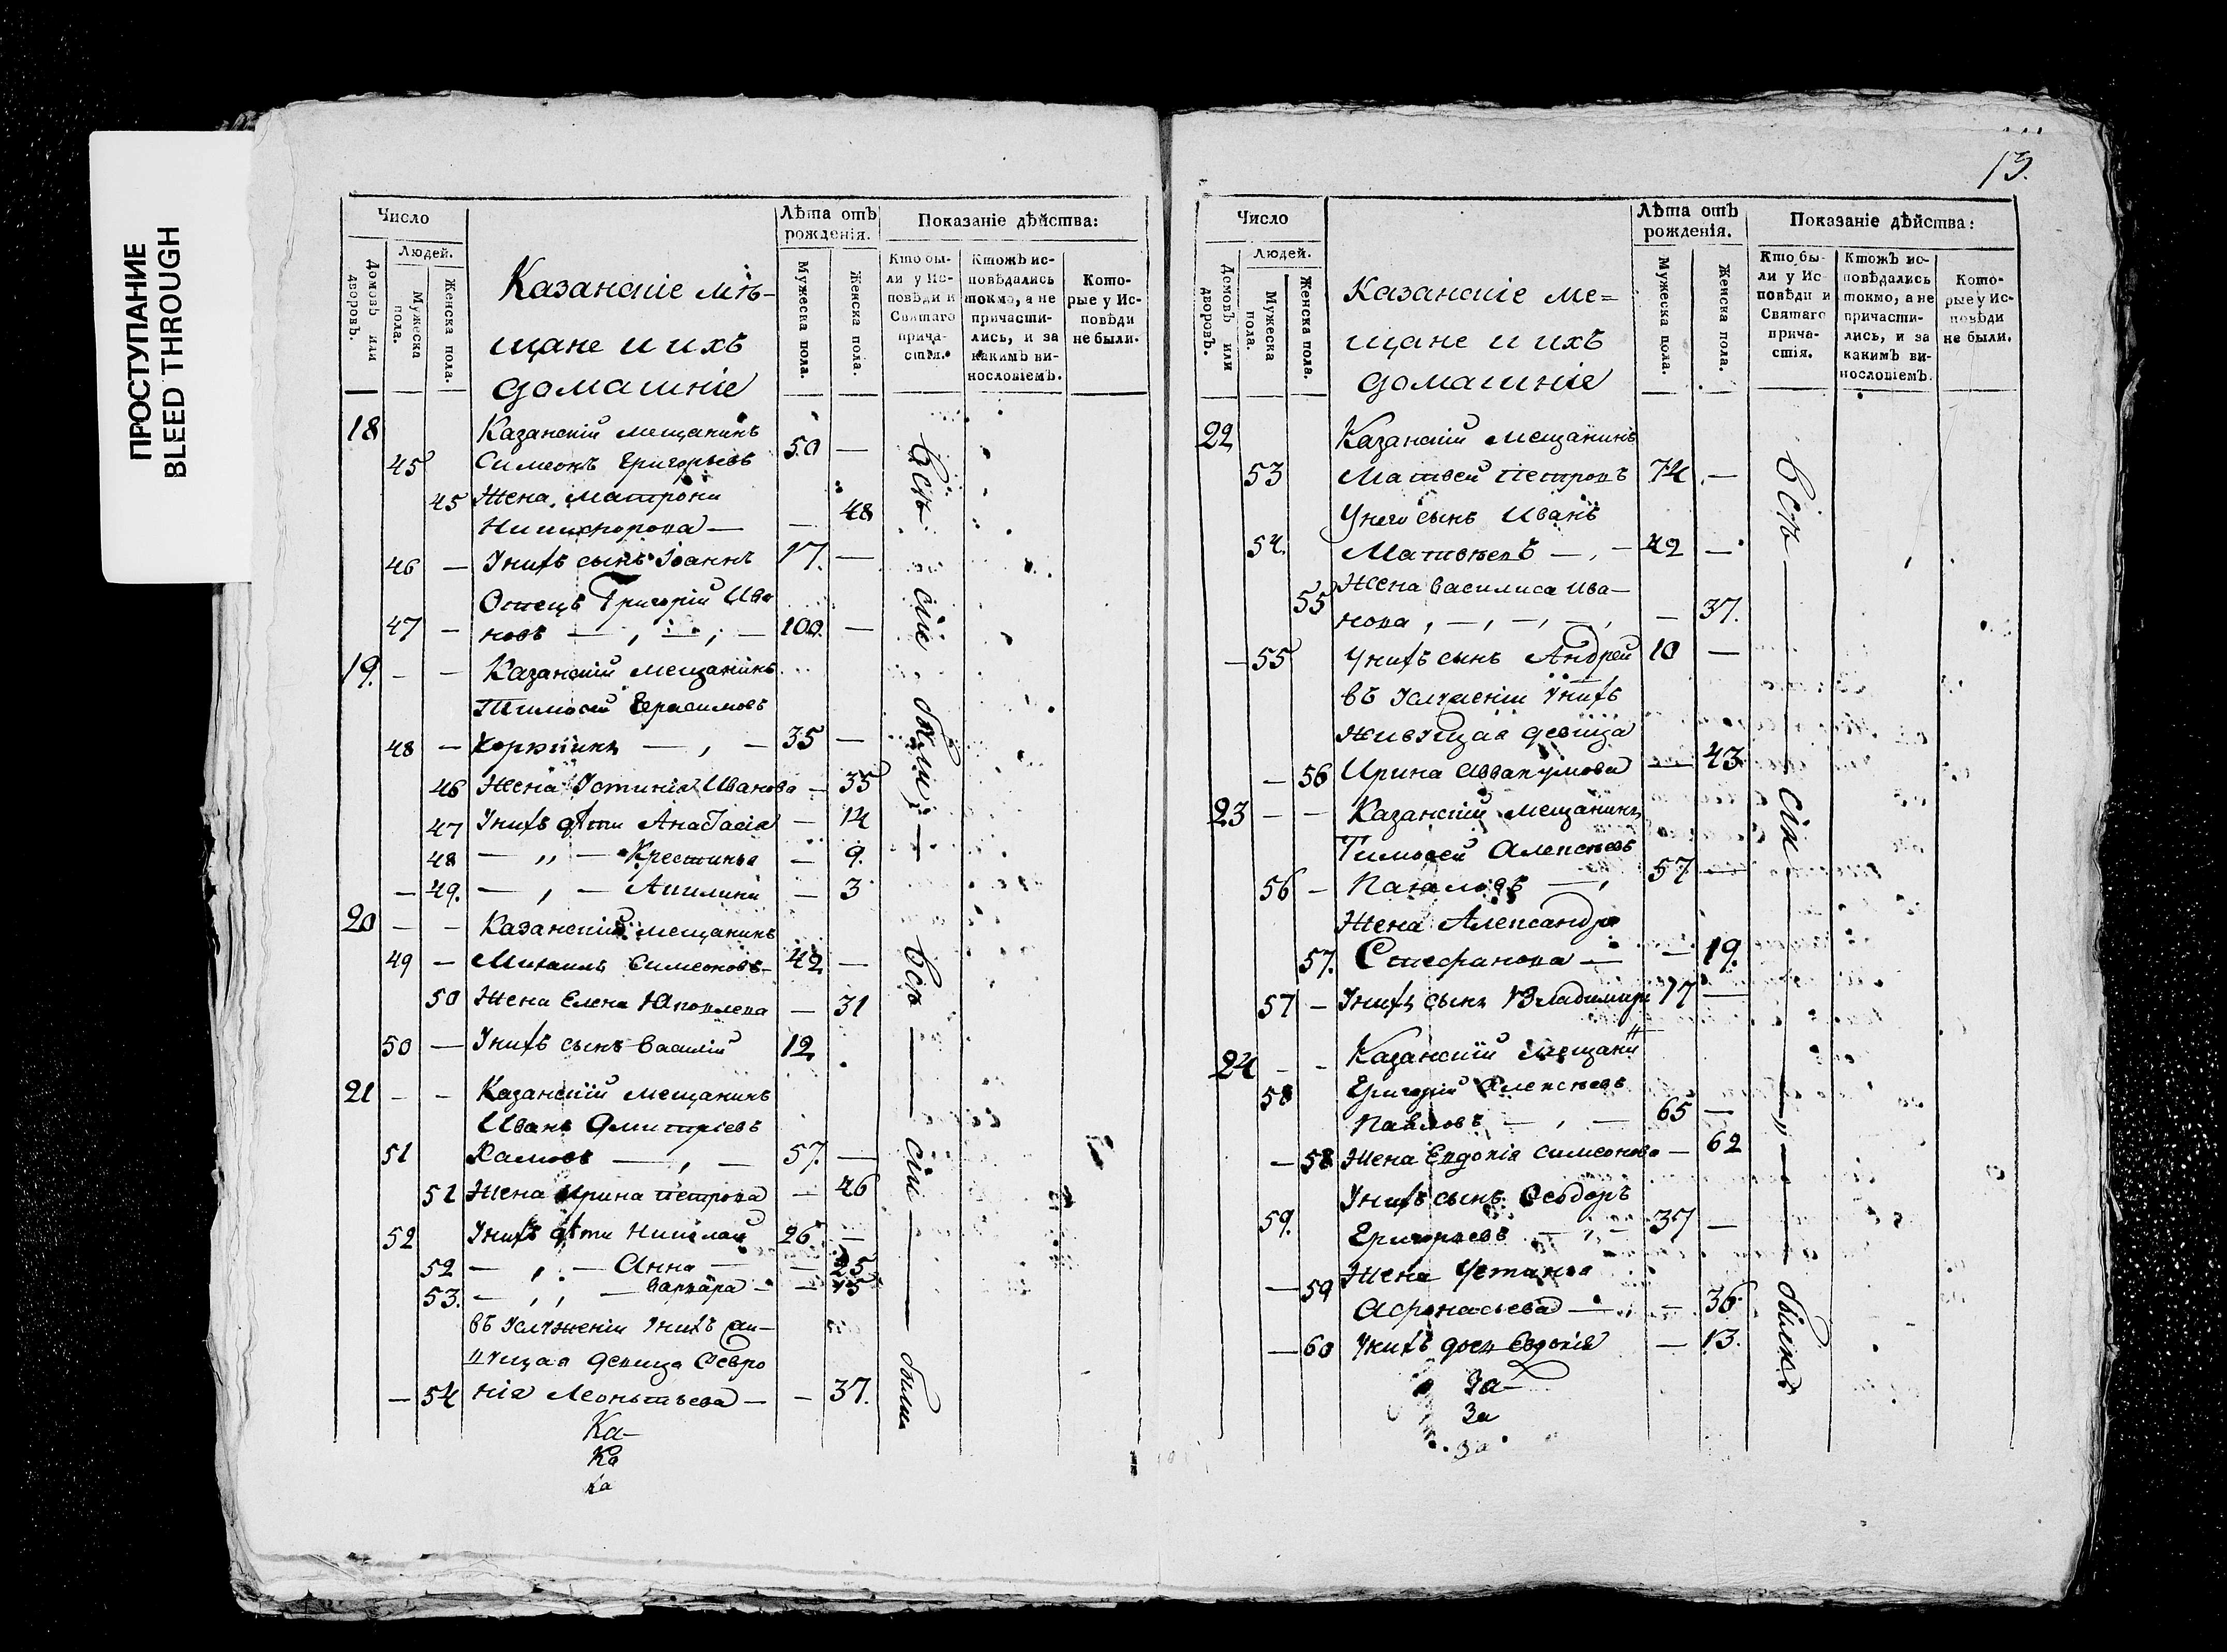 ПРОСТУПАНИЕ
BLEED THROUGH
Число
Людей.
Домовъ или дворовъ.
Мужеска пола.
Женска пола.
Казанскіе мѣ-
щане и ихъ
домашніе
Лѣта отъ
рожденія.
Мужеска пола.
Женска пола.
Показаніе дѣйства:
Кто бы-
ли у Ис-
повѣди и
Святаго
прича-
стія.
Ктожъ ис-
повѣдались
токмо, а не
причасти-
лись, и за
какимъ ви-
нословіемъ.
Кото-
рые у Ис-
повѣди
не были.
18 Казанскій мещанинъ
45 Симеонъ Григорьевъ 50 —
45 Жена Матрона
Никифорова — — 48
46 — Унихъ сынъ Іоаннъ 17. —
Отецъ Григорій Ива
47 — новъ — , — , — 100. —
19. — — Казанскій мещанинъ
Тимофей Герасимовъ
48 — — , — 35 —
46 Жена Устинія Иванова — 35
47 Унихъ дѣти Анастасія — 14
48 — ,, — Крестинья — 9.
— 49. — , — Акилина — 3
20 — — Казанскій мещанинъ
49 — Михаилъ Симеоновъ — 42 —
50 Жена Елена Яковлева — 31
50 — Унихъ сынъ Василій 12
21 — — Казанскій мещанинъ
Иванъ Дмитріевъ
51 — , — 57. —
51 Жена Ирина Петрова — 46
52 Унихъ дѣти Николай 26 —
52 — , — Анна — — 25
53. — , , — Варвара — — 15
въ услуженіи Унихъ жи-
вущая девица Февро
— 54 нія Леонтьева — — 37.
Ка-
Ка
ка
всѣ сіи были, —
всѣ — сіи — были
13.
Число
Людей.
Домовъ или дворовъ.
Мужеска пола.
Женска пола.
Казанскіе ме=
щане и ихъ
домашніе
Лѣта отъ
рожденія.
Мужеска пола.
Женска пола.
Показаніе дѣйства:
Кто бы-
ли у Ис-
повѣди и
Святаго
прича-
стія.
Ктожъ ис-
повѣдались
токмо, а не
причасти-
лись, и за
какимъ ви-
нословіемъ.
Кото-
рые у Ис-
повѣди
не были.
22 Казанскій мещанинъ
53 Матвей Петровъ 74 —
Унего сынъ Иванъ
54. Матвѣевъ — , — 42 —
55 Жена Василиса Ива—
нова , — , — , — , — 37.
— 55 Унихъ сынъ Андрей 10 —
въ услуженіи Унихъ
живущая девица
— 56 Ирина Аввакумова — 43
23 — — Казанскій мещанинъ
Тимофей Алексѣевъ
56 — — , 57 —
Жена Александра
57. Стефанова — — 19.
57 — Унихъ сынъ Владимиръ 17 —
24 — — Казанскій мещанинъ
58 Григорій Алексѣевъ
Павловъ — , — 65 —
— 58 Жена Евдокія Симеонова — 62
Унихъ сынъ Феодоръ
59. Григорьевъ — , — 37 —
— 59 Жена Устинья
Афонасьева — , — 36.
— 60 Унихъ дочь Евдокія — 13.
За-
За
За
всѣ — сіи — ,, — были.